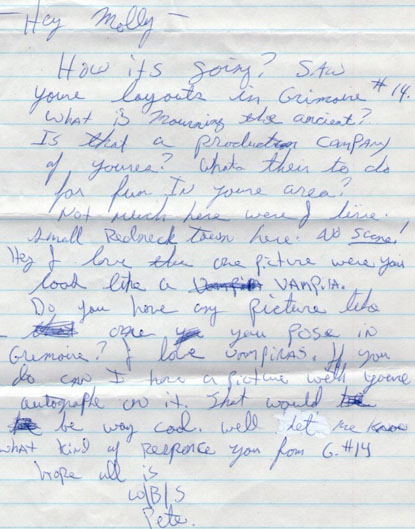 Hey Molly –
How its going? SAW
youre layouts in Grimoire #14.
What is Mourning the ancient?
Is that a production company
of youres? Whats their to do
for fun In youre area?
Not much here were I live.
Small Redneck town here. NO Scene!
Hey I love the one picture were you
look like a VAMPIRA.
Do you have any picture like
one you pose in
Grimoire? I love Vampiras. If you
do can I have a picture with youre
autograph on it. That would
be way cool. well let me know
what kind of responce you from G. #14
hope all is
W/B/S
Pete.